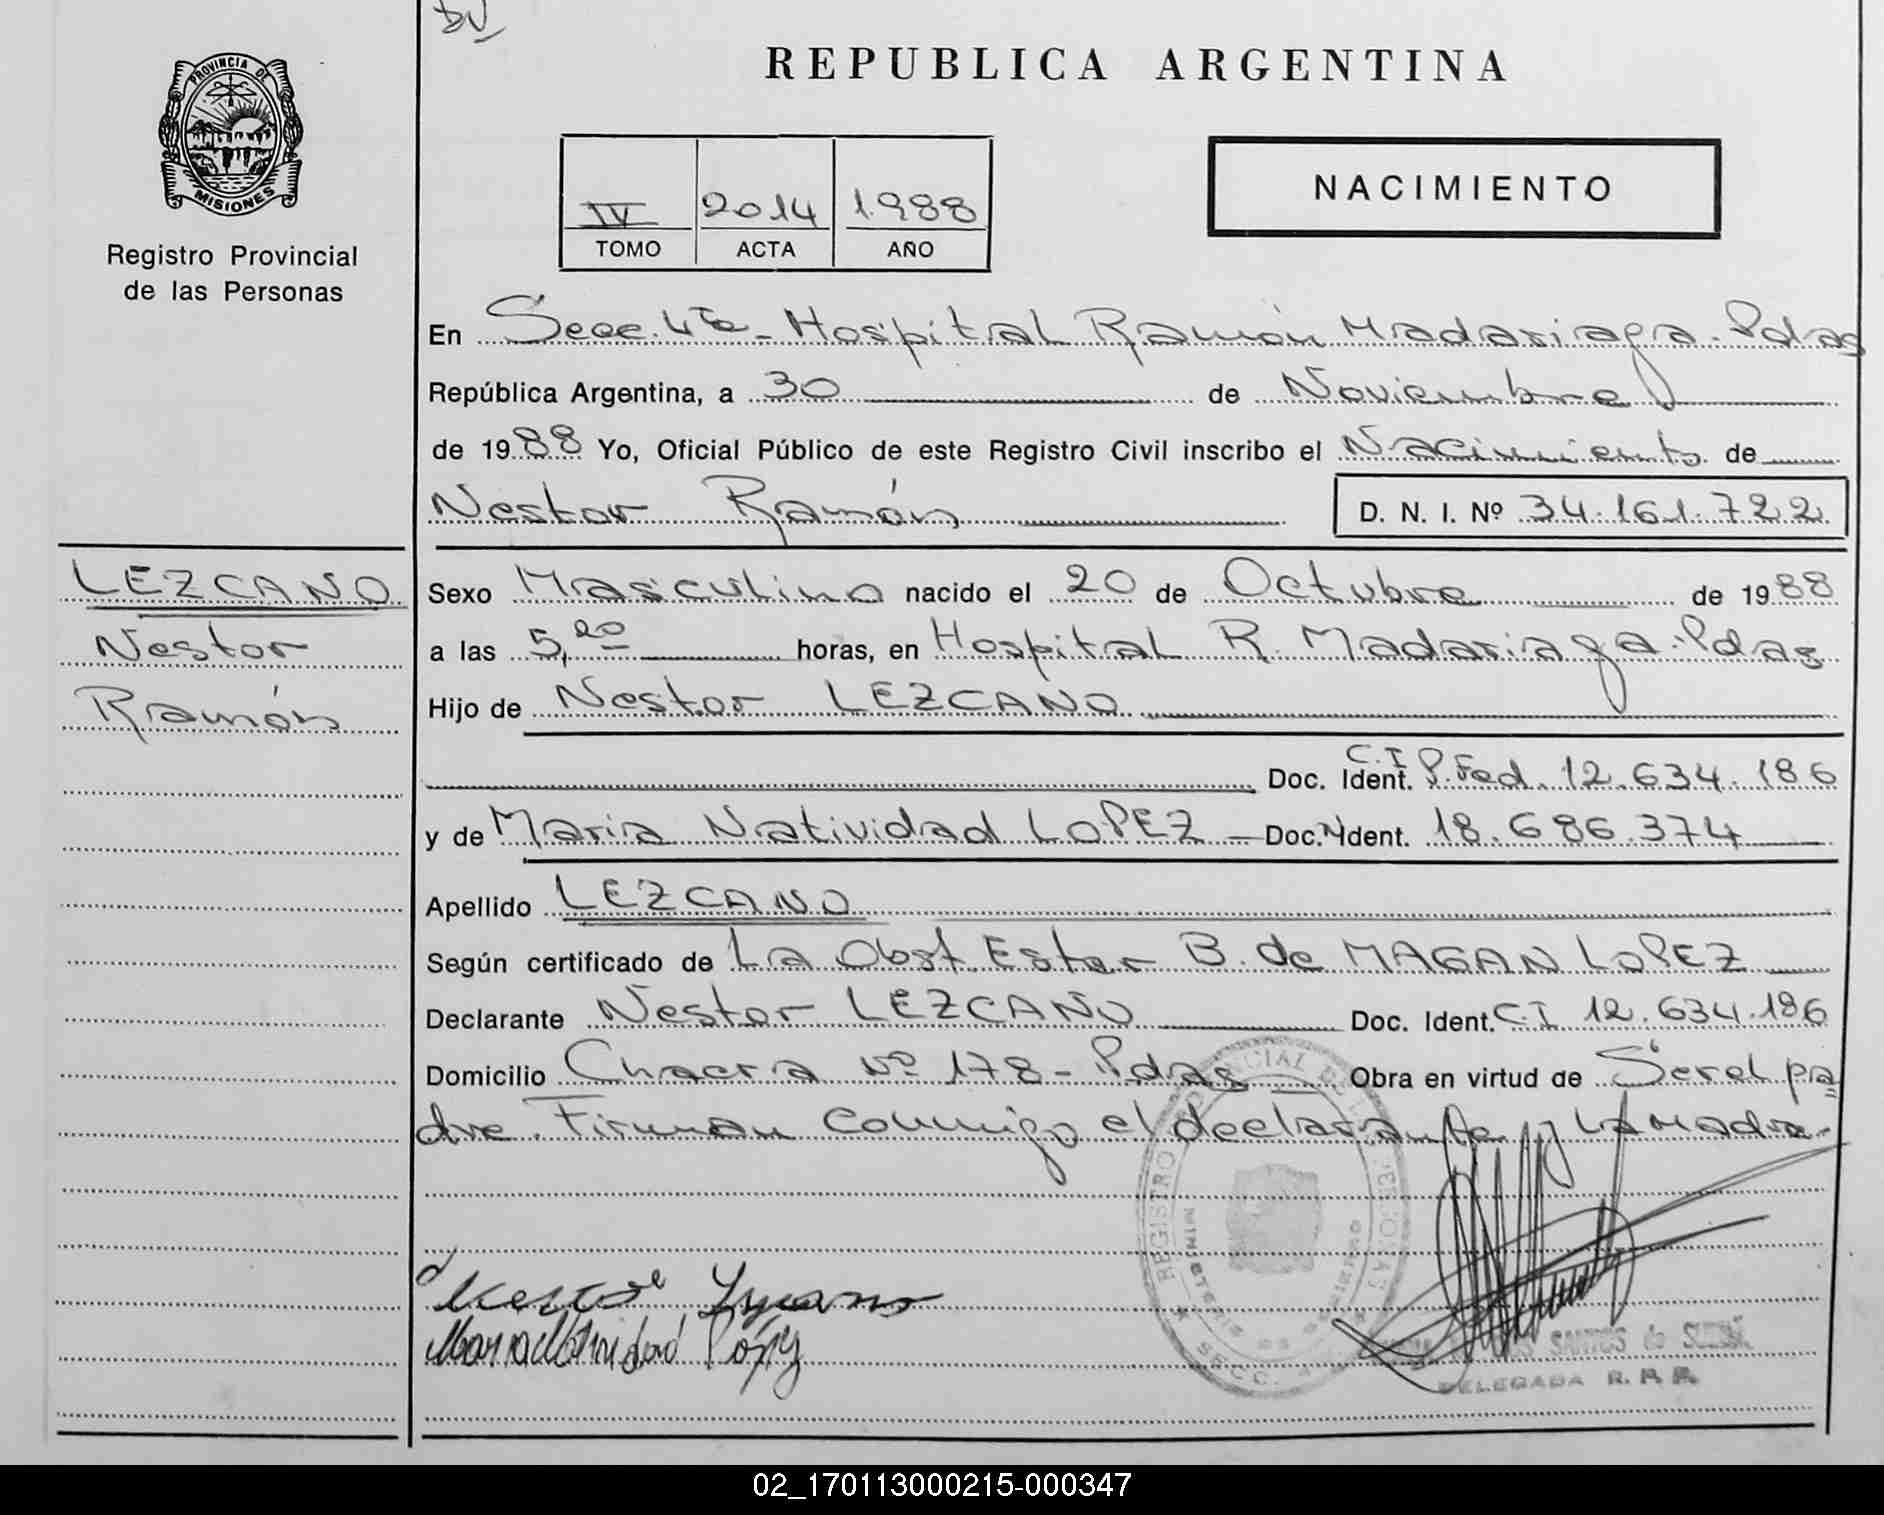 DV
REPUBLICA ARGENTINA
PROVINCIA DE
MISIONES
Registro Provincial
de las Personas
IV 2014 1988
TOMO ACTA AÑO
NACIMIENTO
En Secc. 4ta - Hospital Ramón Madariaga - Pdas
República Argentina, a 30 de Noviembre
de 1988 Yo, Oficial Público de este Registro Civil inscribo el Nacimiento de
Nestor Ramón D. N. I. Nº 34.161.722
LEZCANO
Nestor
Ramón
Sexo Masculino nacido el 20 de Octubre de 1988
a las 5,20 horas, en Hospital R. Madariaga - Pdas
Hijo de Nestor LEZCANO
Doc. Ident. C.I P. Fed. 12.634.186
y de Maria Natividad LOPEZ Doc. Ident. 18.686.374
Apellido LEZCANO
Según certificado de La Obst. Ester B. de MAGAN LOPEZ
Declarante Nestor LEZCANO Doc. Ident. C.I 12.634.186
Domicilio Chacra Nº 178 - Pdas Obra en virtud de Ser el pa
dre. Firman conmigo el declarante y la Madre.
Nestor Lezcano
Maria Natividad López
REGISTRO PROVINCIAL DE LAS PERSONAS
MINISTERIO DE GOBIERNO
SECC. 4
SANTOS de
DELEGADA R. P. P.
02_170113000215-000347